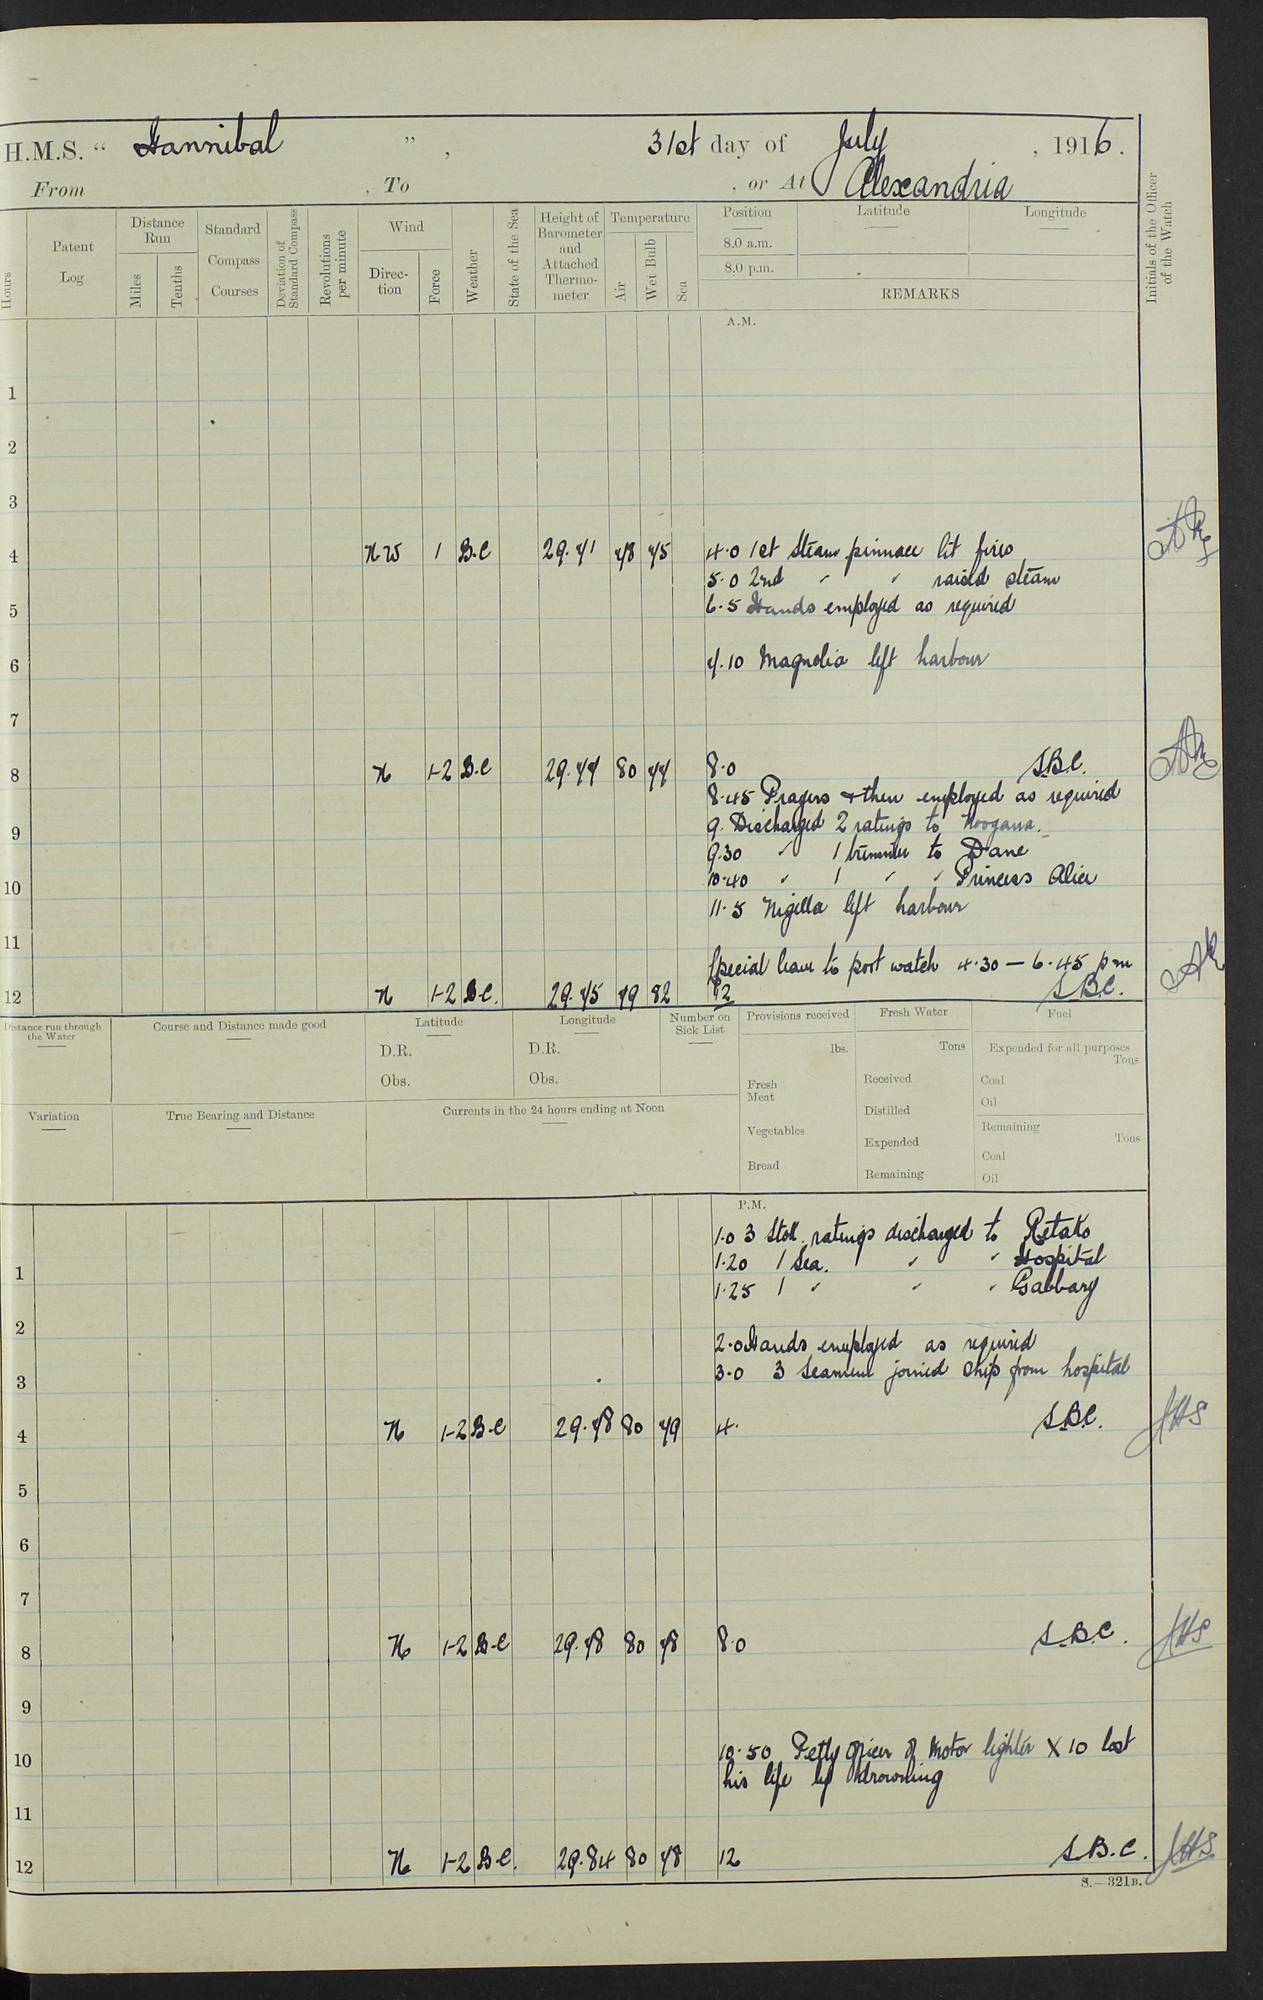 H.M.S. “ Hannibal ” , 31st day of July , 1916.
From , To , or At Alexandria
Hours
Patent Log
Distance Run
Miles
Tenths
Standard Compass Courses
Deviation of Standard Compass
Revolutions per minute
Wind
Direction
Force
Weather
State of the Sea
Height of Barometer and Attached Thermometer
Temperature
Air
Wet Bulb
Sea
Position
8.0 a.m.
8.0 p.m.
Latitude
Longitude
REMARKS
Initials of the Officer of the Watch
A.M.
1
2
3
4 NW 1 B.C 29.71 78 75 4.0 1st Steam pinnace lit fires
5.0 2nd " " raised steam
5 6.5 Hands employed as required
6 7.10 Magnolia left harbour
7
8 N 1-2 B.C 29.77 80 77 8.0 S.B.C.
8.45 Prayers & then employed as required
9 9. Discharged 2 ratings to Noogana.
9.30 " 1 trimmer to Dane
10 10.40 " 1 " " Princess Alice
11.5 Nigella left harbour
11
Special leave to port watch 4.30 — 6.45 pm
12 N 1-2 B.C. 29.75 79 82 12 S.B.C.
Distance run through the Water
Course and Distance made good
Latitude
D.R.
Obs.
Longitude
D.R.
Obs.
Number on Sick List
Provisions received
lbs.
Fresh Meat
Vegetables
Bread
Fresh Water
Tons
Received
Distilled
Expended
Remaining
Fuel
Expended for all purposes
Tons
Coal
Oil
Remaining
Tons
Coal
Oil
Variation
True Bearing and Distance
Currents in the 24 hours ending at Noon
P.M.
1.0 3 Stok. ratings discharged to Retako
1 1.20 1 Sea. " " Hospital
1.25 1 " " " Gabbary
2 2.0 Hands employed as required
3 3.0 3 Seamen joined ship from hospital
4 N 1-2 B.C 29.78 80 79 4. S.B.C. JHS
5
6
7
8 N 1-2 B.C 29.78 80 78 8.0 S.B.C. JHS
9
10 10.50 Petty Officer of Motor lighter X 10 lost
his life by drowning
11
12 N 1-2 B.C. 29.84 80 78 12 S.B.C. JHS
S.—321B.